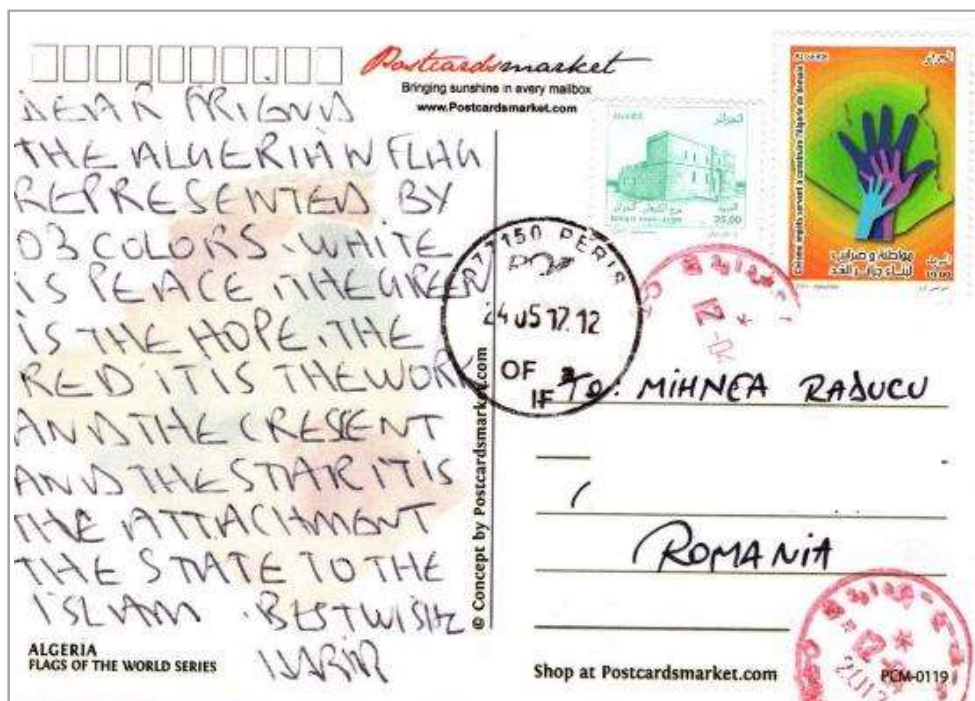 Postcardsmarket
Bringing sunshine in every mailbox
www.Postcardsmarket.com
DEAR FRIEND
THE ALGERIAN FLAG
REPRESENTED BY
03 COLORS. WHITE
IS PEACE, THE GREEN
IS THE HOPE, THE
RED IT IS THE WORK
AND THE CRESENT
AND THE STAR IT IS
THE ATTACHMENT
THE STATE TO THE
ISLAM. BEST WISHE
ALGERIA
FLAGS OF THE WORLD SERIES
© Concept by Postcardsmarket.com
الجزائر
25,00
ALGERIE
الجزائر
مواطنة و ضرائب
لبناء جزائر الغد
البريد
077150 PERIS
24 05 17.12
OF
IF
TO: MIHNEA RADUCU
ROMANIA
Shop at Postcardsmarket.com
PCM-0119